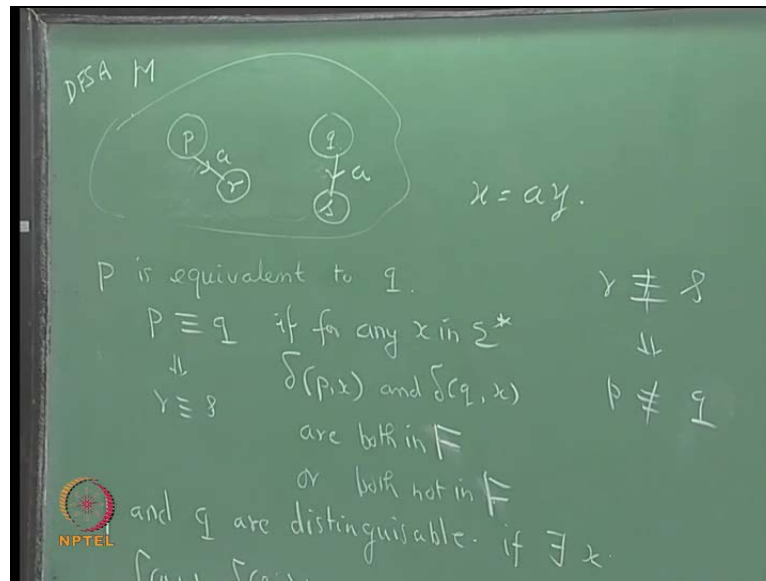 DFSA M
p
q
a
a
r
s
x = ay.
p is equivalent to q.
p ≡ q if for any x in Σ*
⇓
r ≡ s
δ(p,x) and δ(q,x)
are both in F
or both not in F
r ≢ s
⇓
p ≢ q
and q are distinguisable. if ∃ x.
NPTEL